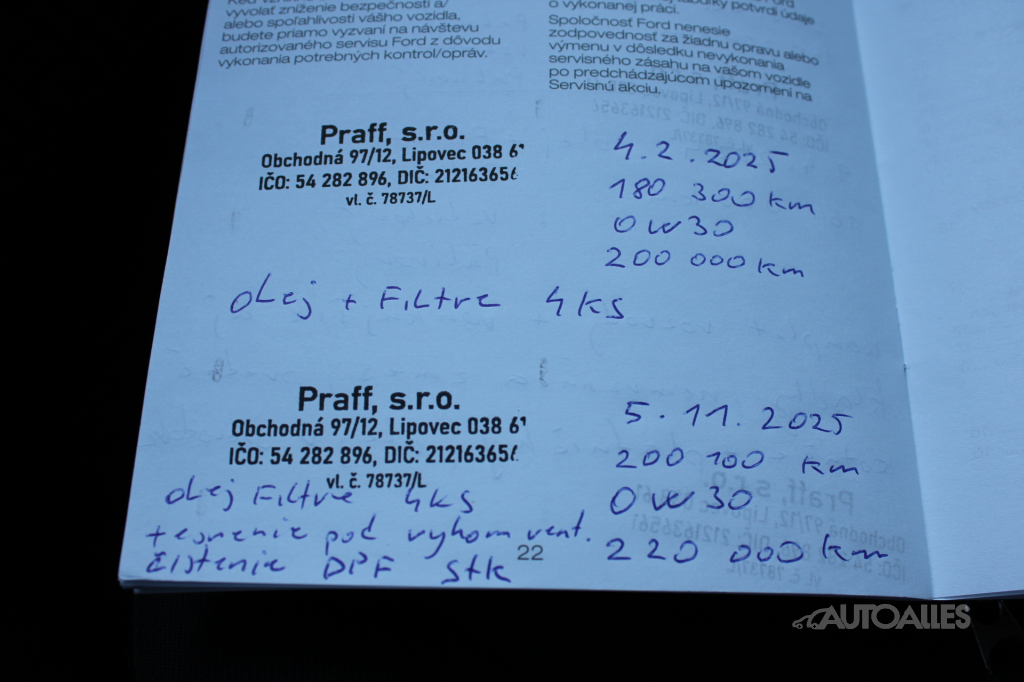 vyvolať zníženie bezpečnosti a/
alebo spoľahlivosti vášho vozidla,
budete priamo vyzvaní na návštevu
autorizovaného servisu Ford z dôvodu
vykonania potrebných kontrol/opráv.
o vykonanej práci.
Spoločnosť Ford nenesie
zodpovednosť za žiadnu opravu alebo
výmenu v dôsledku nevykonania
servisného zásahu na vašom vozidle
po predchádzajúcom upozornení na
Servisnú akciu.
Praff, s.r.o.
Obchodná 97/12, Lipovec 038 61
IČO: 54 282 896, DIČ: 212163656
vl. č. 78737/L
4.2.2025
180 300 km
0W30
200 000 km
olej + Filtre 4ks
Praff, s.r.o.
Obchodná 97/12, Lipovec 038 61
IČO: 54 282 896, DIČ: 212163656
vl. č. 78737/L
olej Filtre 4ks
+ tesnenie pod vyhom vent.
čistenie DPF stk
5.11.2025
200 100 km
0W30
220 000 km
22
AUTOALLES